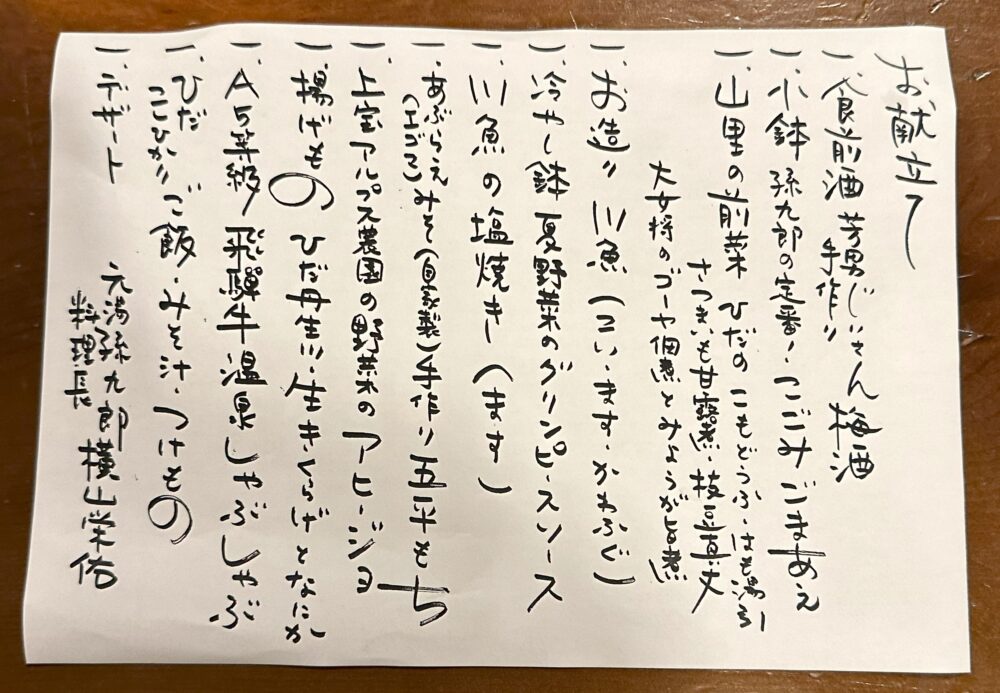 お献立て
一、食前酒 芳男じいさん 梅酒
手作り
一、小鉢 孫九郎の定番、こごみごまあえ
一、山里の前菜 ひだのこもどうふ・はも湯引
さつまいも甘露煮・枝豆真丈
大女将のゴーヤ佃煮とみょうが旨煮
一、お造り 川魚(こい・ます・かわふぐ)
一、冷やし鉢 夏野菜のグリンピースソース
一、川魚の塩焼き(ます)
一、あぶらえみそ(自家製)手作り五平もち
(エゴマ)
一、上宝アルプス農園の野菜のアヒージョ
一、揚げもの ひだ丹生川・生きくらげとなにか
一、A5等級 飛騨牛 温泉しゃぶしゃぶ
一、ひだこしひかりご飯・みそ汁・つけもの
一、デザート
元湯孫九郎 横山栄佑
料理長